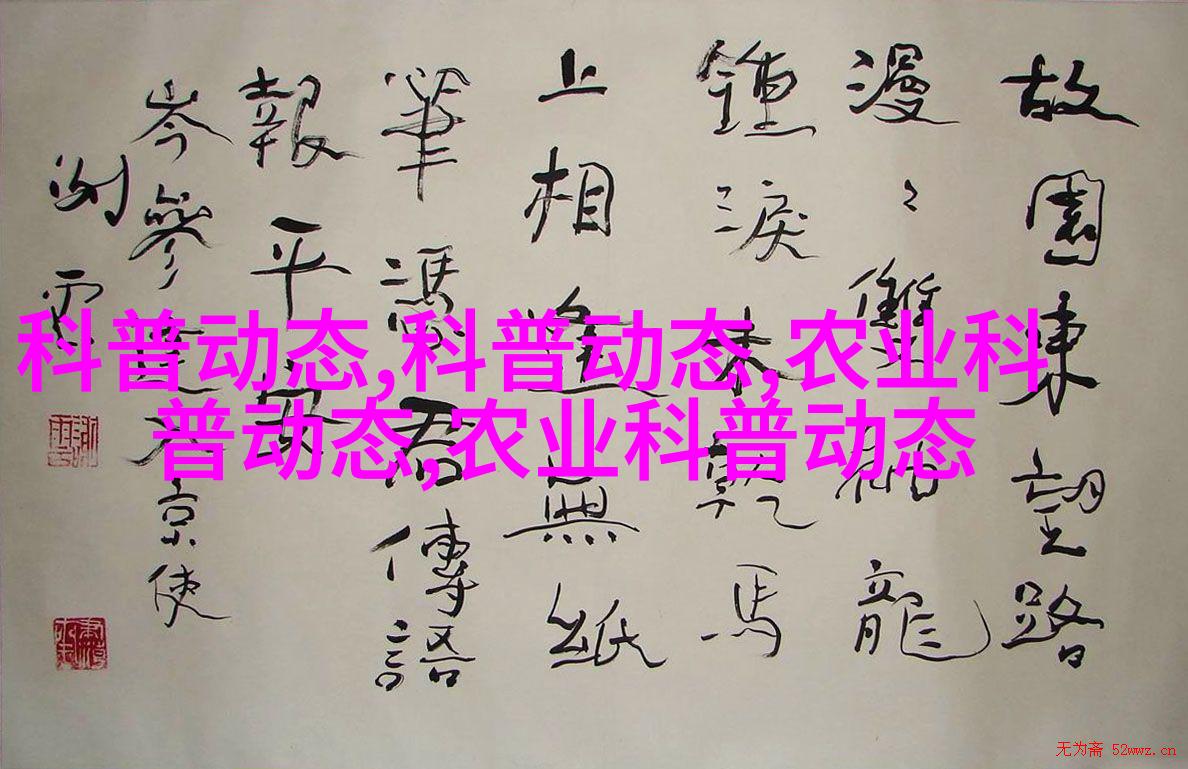 故園東望路
漫〻雙袖龍
鍾淚未乾馬
上相逢無紙
筆憑君傳語
報平安
岑參逢入京使
科普动态,科普动态,农业科
普动态,农业科普动态
无为斋 52wwz.cn